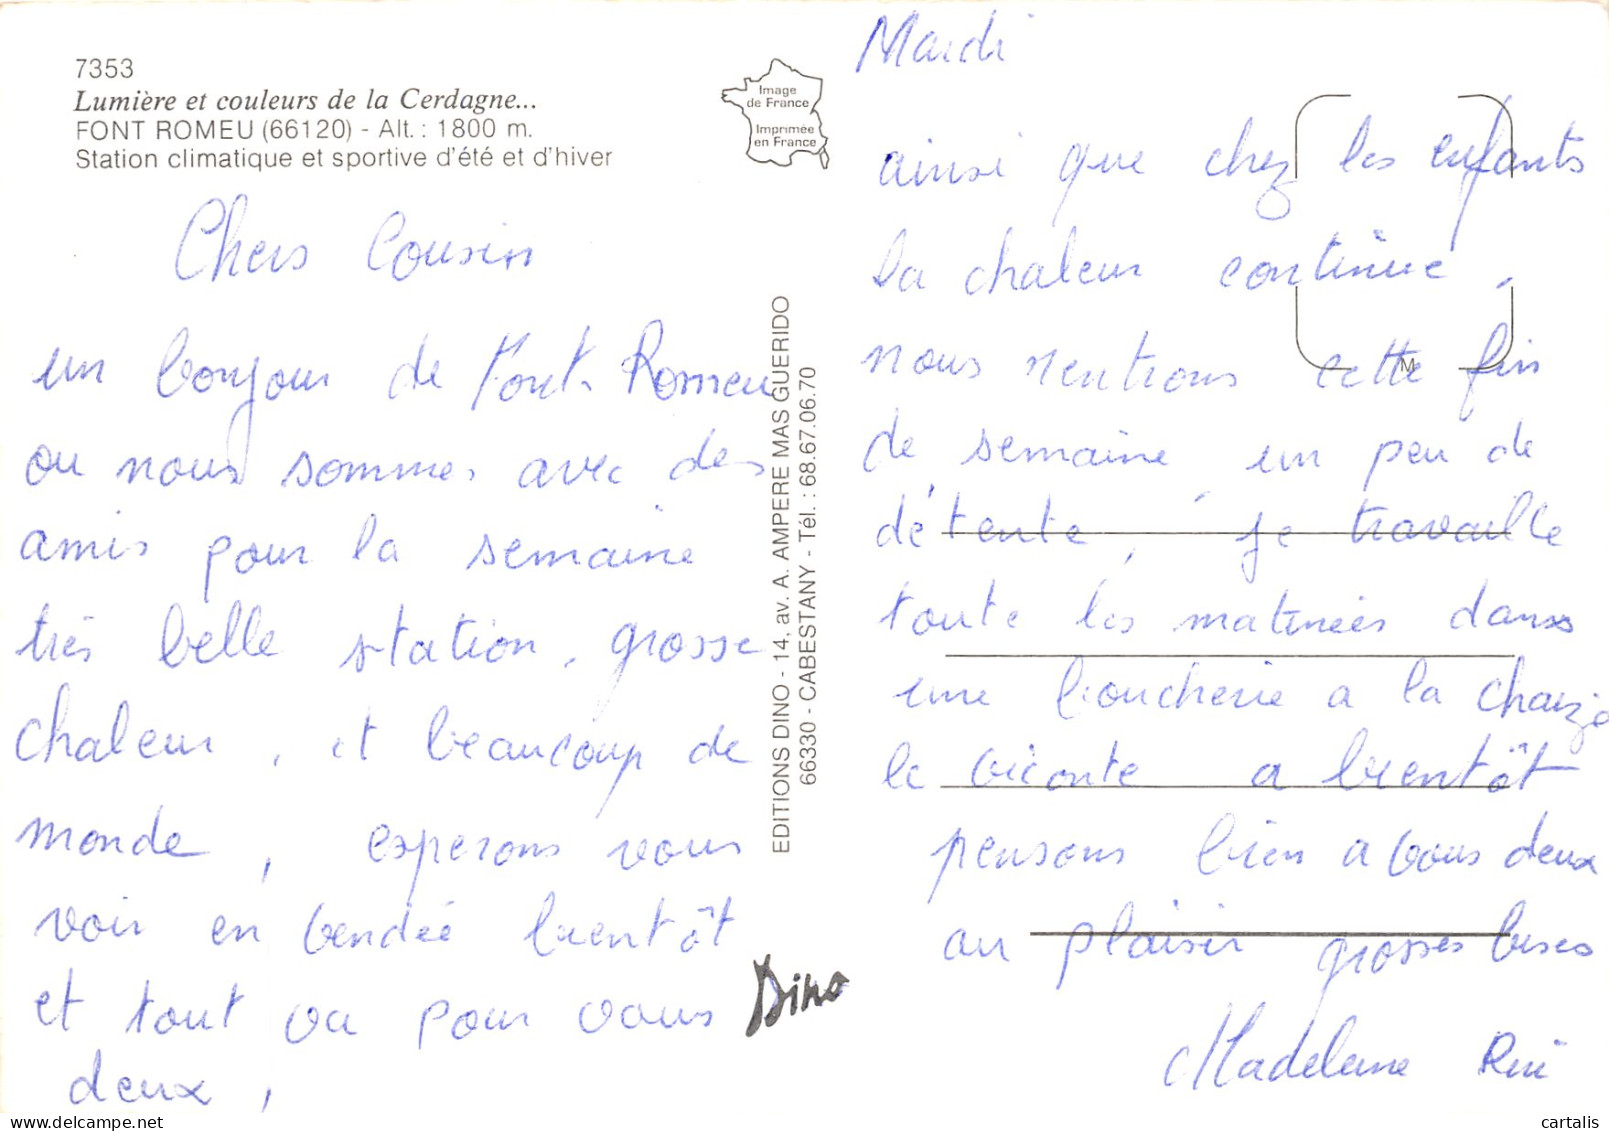 7353
Lumière et couleurs de la Cerdagne...
FONT ROMEU (66120) - Alt. : 1800 m.
Station climatique et sportive d'été et d'hiver
Image
de France
Imprimée
en France
Chers Cousin
un bonjour de Font-Romeu
ou nous sommes avec des
amis pour la semaine
très belle station, grosse
chaleur, et beaucoup de
monde, esperons vous
voir en Vendée bientôt
et tout va pour vous
deux,
EDITIONS DINO - 14, av. A. AMPERE MAS GUERIDO
66330 - CABESTANY - Tél. : 68.67.06.70
Dino
Mardi
ainsi que chez les enfants
la chaleur continue,
nous rentrons cette fin
de semaine, un peu de
détente, je travaille
toute les matinées dans
une boucherie a la chaize
le viconte a bientôt
M
pensons bien a vous deux
au plaisir grosses bises
Madeleine
cartalis